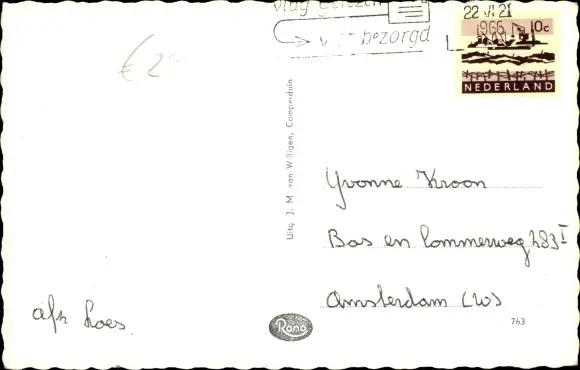 vlug gelezen
bezorgd
22 VI 21
1966
10c
NEDERLAND
€ 2
Uitg J. M van Willigen, Camperduin
Yvonne Kroon
Bos en Lommerweg 283 I
Amsterdam (W)
afz Loes
Rono
763